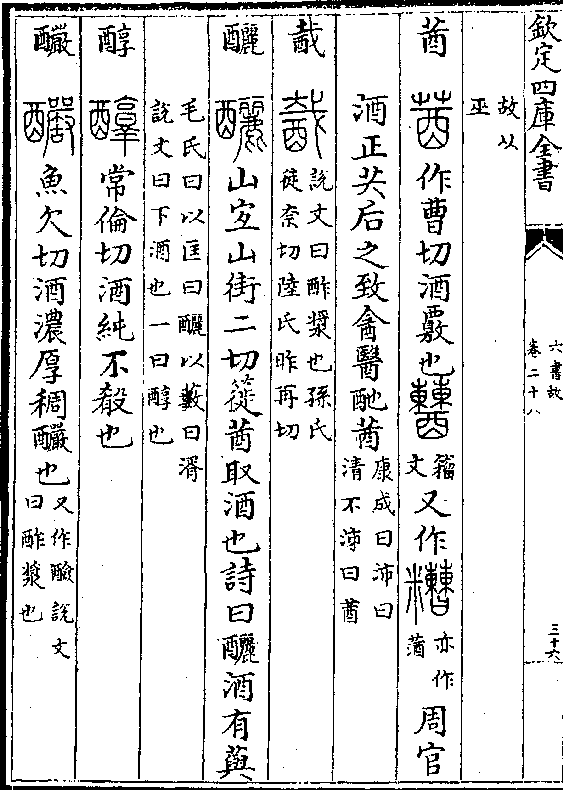 欽定四庫全書 六書故 卷二十八 三十六
故以巫
莤 作曹切酒覈也 籀文 又作 亦作蒏 周官
酒正共后之致酓醫酏莤 康成曰泲曰清不泲曰莤
酨 說文曰酢漿也孫氏徒奈切陸氏昨再切
釃 山宐山街二切簁莤取酒也詩曰釃酒有藇
毛氏曰以匡曰釃以藪曰湑說文曰下酒也一曰醇也
醇 常倫切酒純不殽也
釅 魚欠切酒濃厚稠釅也 又作醶說文曰酢漿也